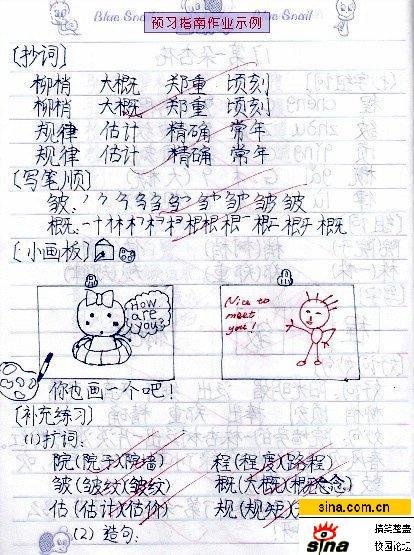 预习指南作业示例
Blue Snail
Blue Snail
[抄词]
柳梢 大概 郑重 顷刻
柳梢 大概 郑重 顷刻
规律 估计 精确 常年
规律 估计 精确 常年
[写笔顺]
皱:
概:
[小画板]
How are you?
Nice to meet you!
你也画一个吧!
[补充练习]
(1)扩词:
院(院子)(院墙) 程(程度)(路程)
皱(皱纹)(皱纹) 概(大概)(概念)
估(估计)(估价) 规(规矩)
(2)造句:
sina.com.cn
sina
搞笑整蛊
校园论坛